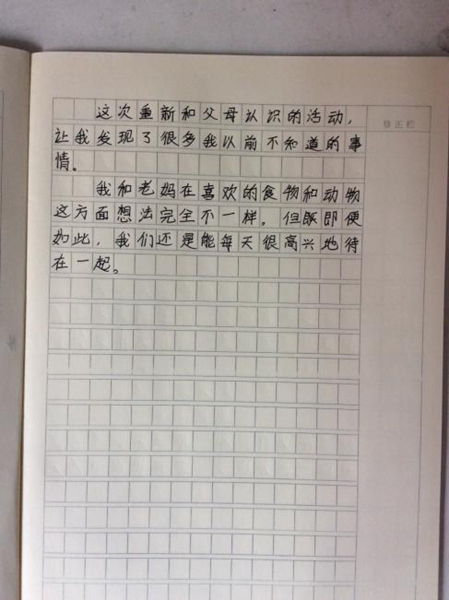 这次重新和父母认识的活动，
让我发现了很多我以前不知道的事
情。
我和老妈在喜欢的食物和动物
这方面想法完全不一样。但既即便
如此，我们还是能每天很高兴地待
在一起。
修正栏